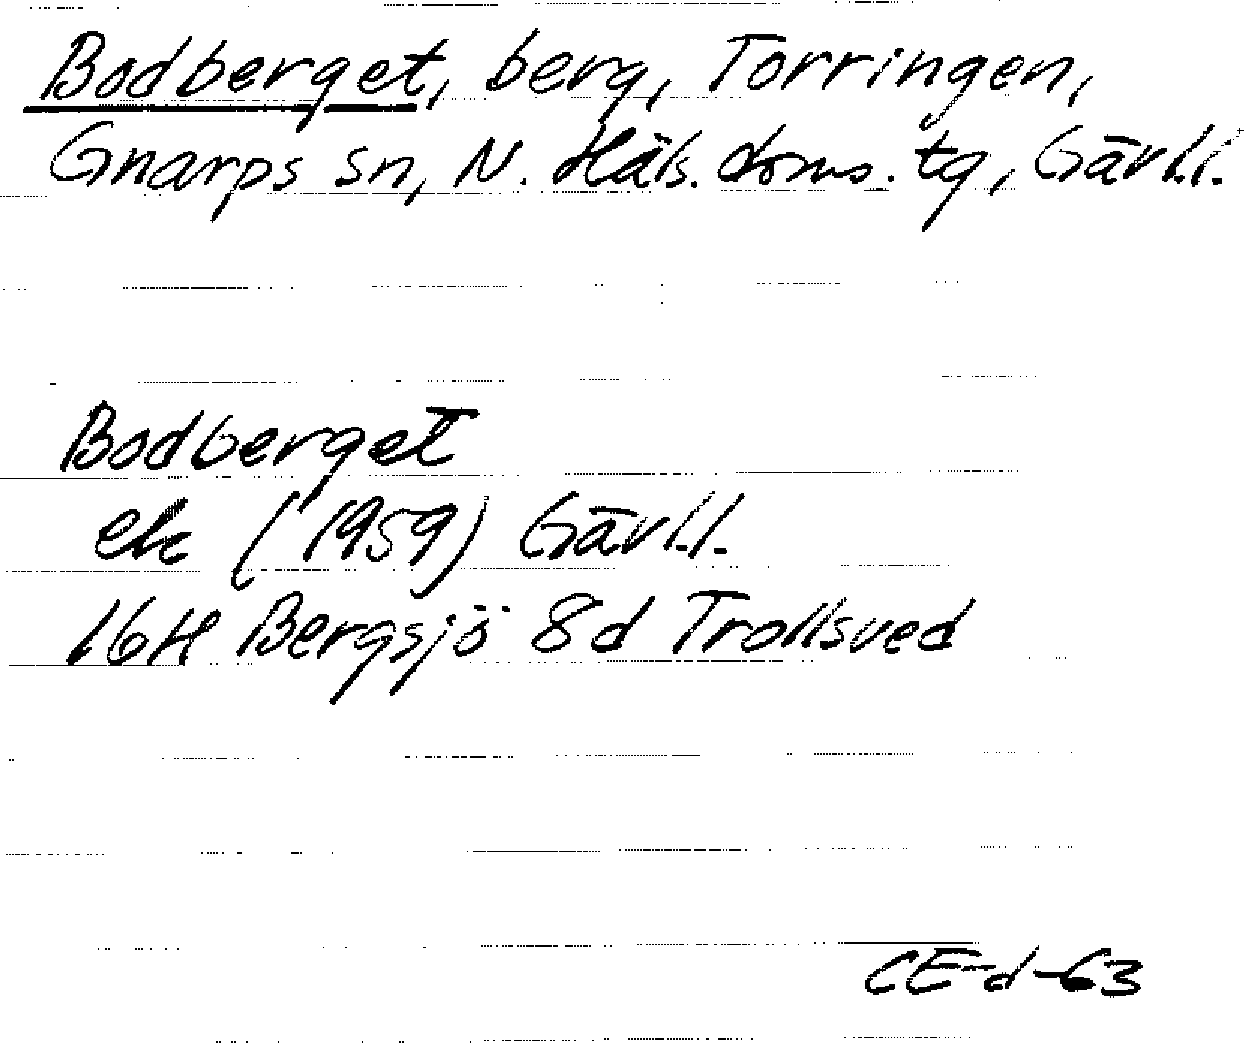 Bodberget, berg, Torringen,
Gnarps sn, N. Häls. doms. tg, Gävl.l.
Bodberget
ek (1959) Gävl.l.
16H Bergsjö 8d Trollsved
CE-d-63